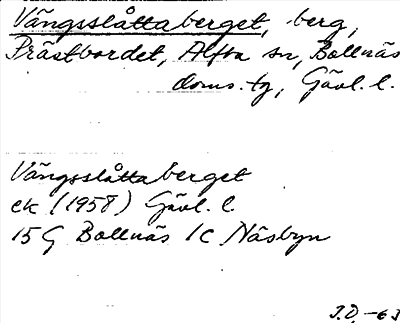 Vängsslåttaberget, berg,
Prästbordet, Alfta sn, Bollnäs
doms. tg, Gävl. l.
Vängsslåttaberget
ek (1958) Gävl. l.
15 G Bollnäs 1c Näsbyn
J.D. -63